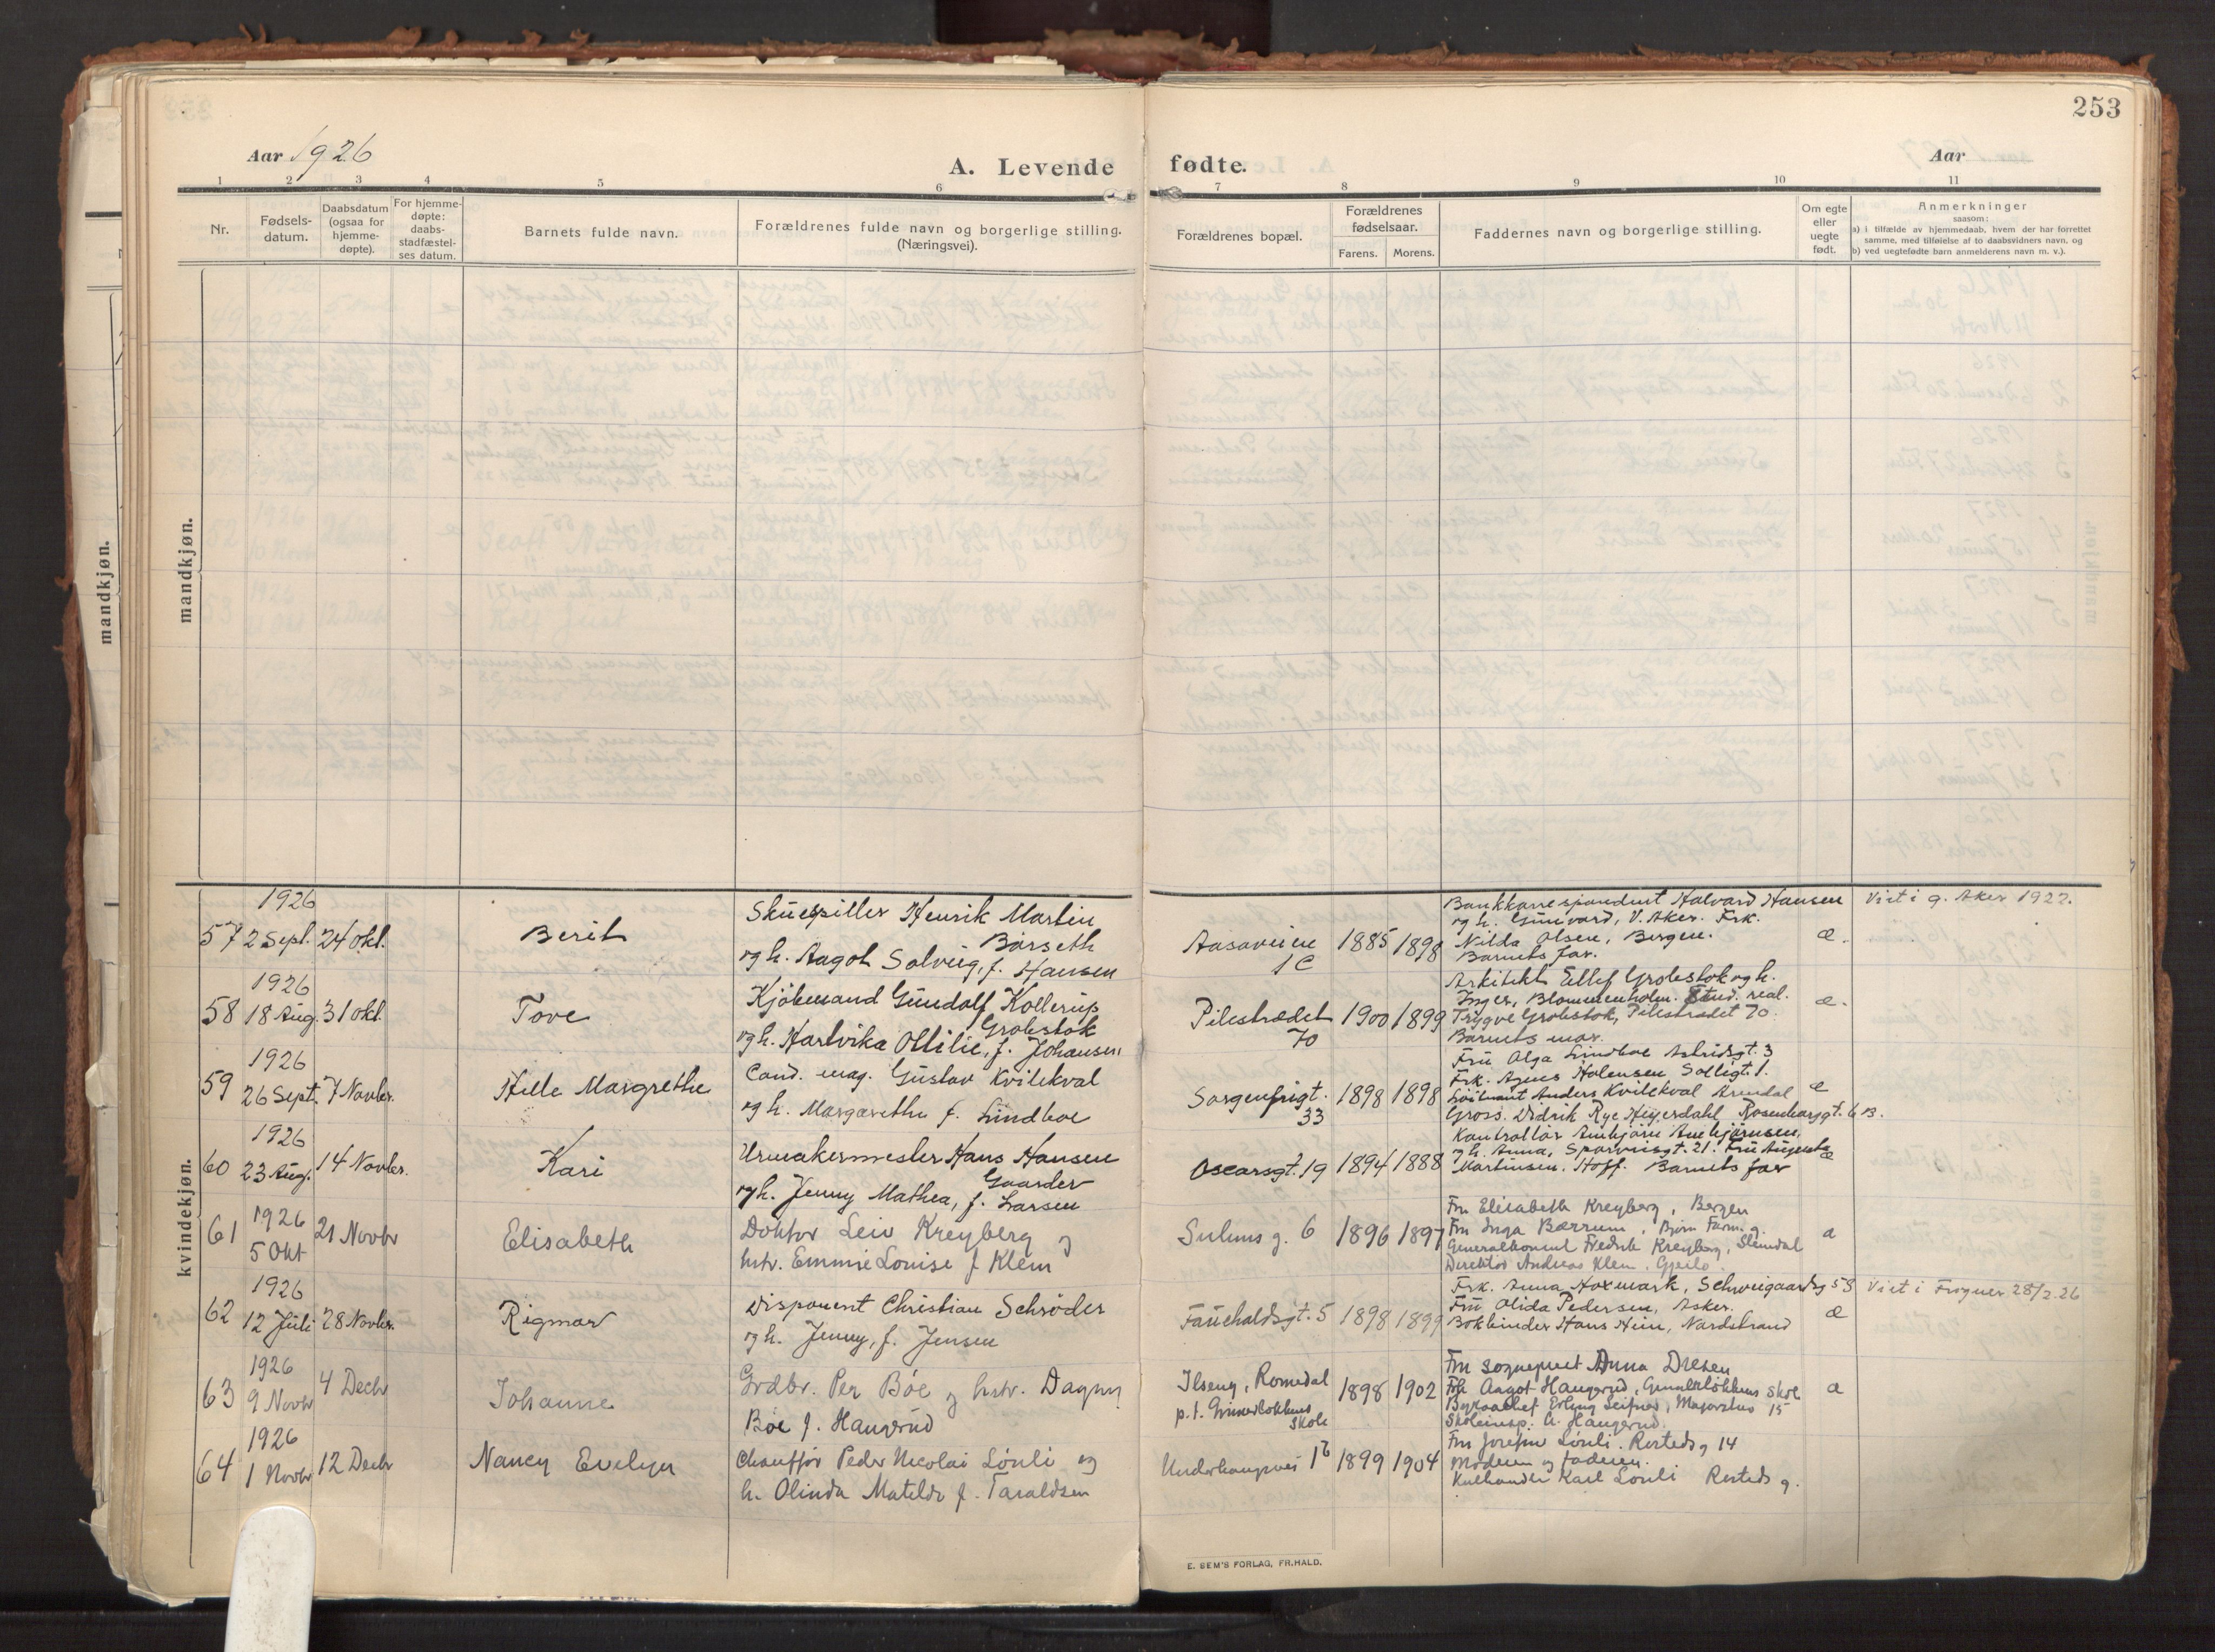 253
Aar 1926
A. Levende
fødte.
Aar
1 2 3 4 5 6 7 8 9 10 11
Nr.
Fødsels-
datum.
Daabsdatum
(ogsaa for
hjemme-
døpte).
For hjemme-
døpte:
daabs-
stadfæstel-
ses datum.
Barnets fulde navn.
Forældrenes fulde navn og borgerlige stilling.
(Næringsvei).
Forældrenes bopæl.
Forældrenes
fødselsaar.
Farens. Morens.
Faddernes navn og borgerlige stilling.
Om egte
eller
uegte
født.
Anmerkninger
saasom:
a) i tilfælde av hjemmedaab, hvem der har forrettet
samme, med tilføielse af to daabsvidners navn, og
b) ved uegtefødte barn anmelderens navn m. v.).
mandkjøn.
mandkjøn.
kvindekjøn.
1926
57 2 Sept. 24 okt.
Berit
Skuespiller Henrik Martin
Børseth
og h. Aagot Solveig, f. Hansen
Aasaveien
1 C
1885 1898
Bankkorrespondent Halvard Hansen
og h. Gunvard, V. Aker. Frk.
Nilda Olsen, Bergen.
Barnets far.
æ.
Viet i g. Aker 1922.
1926
58 18 Aug. 31 okt.
Tove
Kjøbmand Gundolf Kollerup
Grobstok
og h. Hartvika Ottilie, f. Johansen
Pilestrædet
70
1900 1899
Arkitekt Ellef Grobstok og h.
Inger, Blommenholm. Stud. real.
Trygve Grobstok, Pilestrædet 70.
Barnets mor.
æ.
1926
59 26 Sept. 7 Novbr.
Helle Margrethe
Cand. mag. Gustav Kvilekval
og h. Margarethe f. Lindboe
Sorgenfrigt.
33
1898 1898
Fru Olga Lindboe Astridsgt. 3
Frk. Agnes Halensen Solligt. 1.
Løitnant Anders Kvilekval Arendal
Gross. Didrik Rye Heyerdahl Rosenborggt. 6 B.
æ
1926
60 23 Aug. 14 Novbr.
Kari
Urmakermester Hans Hansen
Gaarder
og h. Jenny Mathea, f. Larsen
Oscarsgt. 19
1894 1888
Kontrollør Arnbjørn Arnbjørnsen,
og h. Anna, Sporveisgt. 21. Fru Augusta
Martinsen. Hoff. Barnets far
æ
1926
61 5 Okt 21 Novbr
Elisabeth
Doktor Leiv Kreyberg og
hstr. Emmie Louise f Klem
Suhms g. 6
1896 1897
Fru Elisabeth Kreyberg, Bergen
Fru Inga Bærrum, Bjørn Farm. g.
Generalkonsul Fredrik Kreyberg, Slemdal
Direktør Andreas Klem, Gjeilo
æ
1926
62 12 Juli 28 Novbr.
Rigmor
Disponent Christian Schrøder
og h. Jenny, f. Jensen
Fauchaldsgt. 5
1898 1899
Frk. Anna Hoxmark, Schweigaardsg 58
Fru Olida Pedersen, Asker.
Bokbinder Hans Hein, Nordstrand
æ
Viet i Frogner 28/2. 26
1926
63 9 Novbr 4 Decbr
Johanne
Grdbr. Per Bøe og hstr. Dagny
Bøe f. Haugerud
Ilseng, Romedal
p.t. Grünerløkkens
Skole
1898 1902
Fru sogneprest Anna Olsen
Frk Aagot Haugerud, Grünerløkkens Skole
Erling Seifried, Majorstus 15
Skoleinsp. A. Haugerud.
æ
1926
64 1 Novbr 12 Decbr
Nancy Evelyn
Chauffør Peder Nicolai Lønli og
h. Olinda Matilde f. Taraldsen
Underhaugsvei 1b
1899 1904
Fru Josefine Lønli. Rosteds g 14
Moderen og faderen.
Kulhandler Karl Lønli Rosteds g.
E. SEM'S FORLAG, FR.HALD.